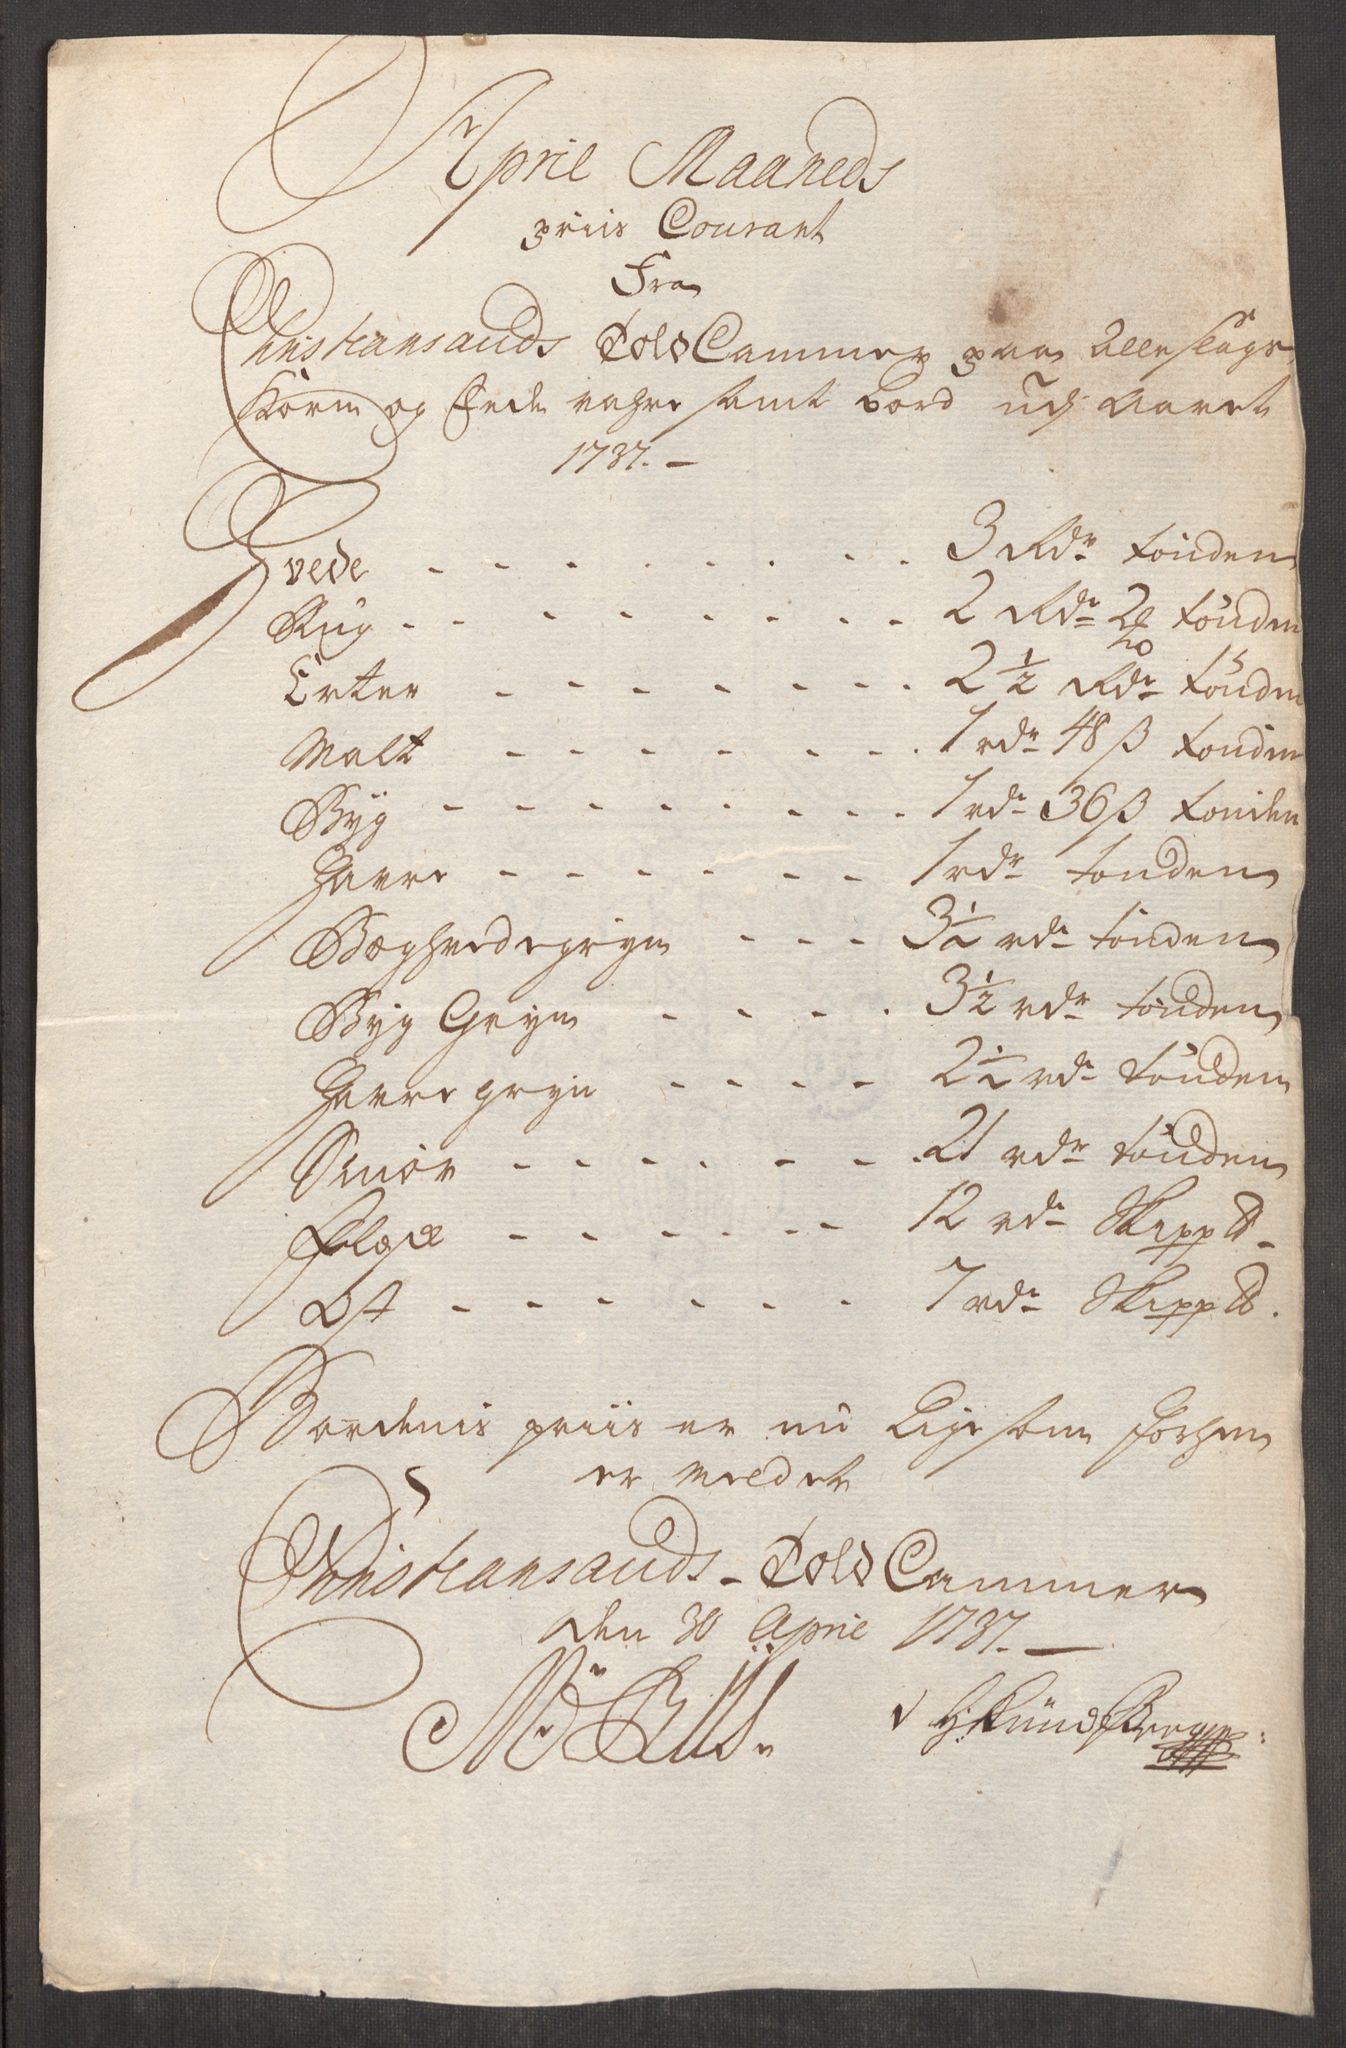 April Maaneds
priis Courant
Fra
Christiansands Told Cammer paa alle slags
Korn og fede vahre samt bord udj Aaret
1737.-
Hvede - - - - - - - - 3 Rdr tønden
Rug - - - - - - - - 2 Rdr tønden
Erter - - - - - - - 2½ Rdr tønden
Malt - - - - - - - 1 rdr 48 ß tønden
Byg - - - - - - - - 1 rdr 36 ß tønden
Havre - - - - - - 1 rdr tønden
Boghvedegryn - - - 3½ rdr tønden
Byg Gryn - - - - 3½ rdr tønden
Havre gryn - - - - 2½ rdr tønden
Smør - - - - - - 21 rdr tønden
- - - - - - 12 rdr Skipp ℔ -
Ost - - - - - - 7 rdr Skipp ℔.
Bordenis priis er nu lige som forhen
er meldet
Christiansands - Told Cammer
den 30 April 1737. -